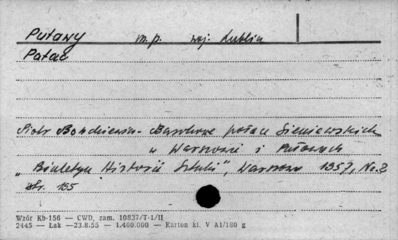 Puławy m.p. woj. Lublin
Pałac
Piotr Bohdziewicz - Barokowe pałace Sieniawskich
w Warszawie i Puławach
„Biuletyn Historii Sztuki", Warszawa 1957, No. 2
str. 135
Wzór Kb-150 — CWD, zam. 10837/T-1/II
2445 — Łak —23.8.55 — 1.400.000 — Karton kl. V A1/180 g